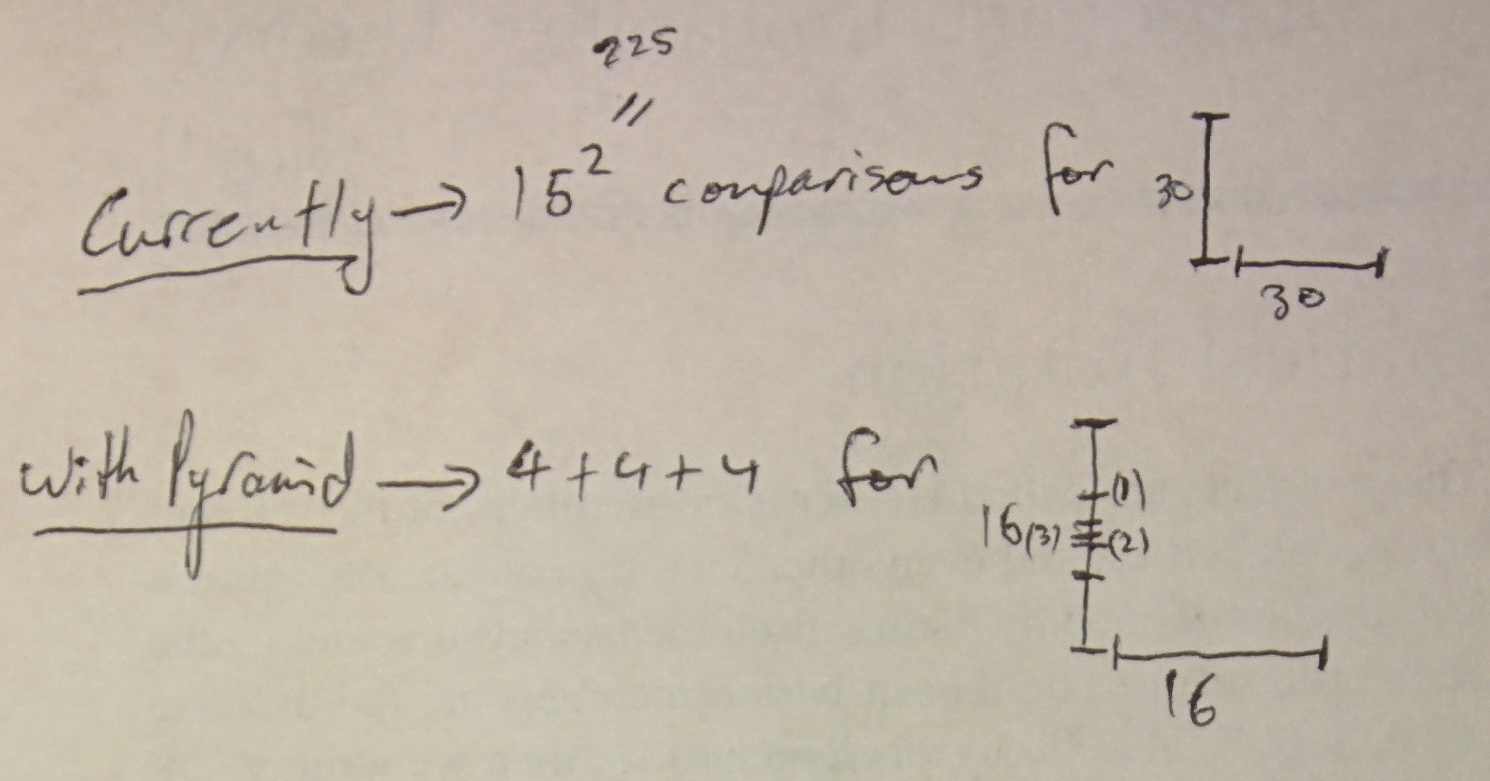 225
"
Currently → 15² comparisons for 30
30
With Pyramid → 4 + 4 + 4 for
(1)
16 (3) (2)
16